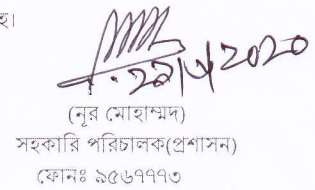 হ।
২৯/৩/২০২০
(নূর মোহাম্মদ)
সহকারি পরিচালক(প্রশাসন)
ফোনঃ ৯৫৬৭৭৭৩